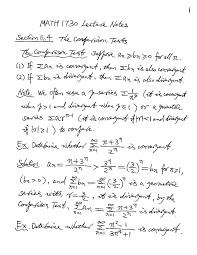 1
MATH 1730 Lecture Notes
Section 11.4 The Comparison Tests
The Comparison Test Suppose an ≥ bn ≥ 0 for all n.
(1) If Σan is convergent, then Σbn is also convergent
(2) If Σbn is divergent, then Σan is also divergent.
Note We often use a p-series Σ 1/n^p (it is convergent
when p>1 and divergent when p≤1) or a geometric
series Σar^(n-1) (it is convergent if |r|<1 and divergent
if |r|≥1) to compare.
Ex. Determine whether Σ(n=1 to ∞) (n+3^n)/2^n is convergent.
Solution an = (n+3^n)/2^n > 3^n/2^n = (3/2)^n = bn for n≥1,
(bn>0), and Σ(n=1 to ∞) bn = Σ(n=1 to ∞) (3/2)^n is a geometric
series with r = 3/2, it is divergent, by the
Comparison Test, Σ(n=1 to ∞) an = Σ(n=1 to ∞) (n+3^n)/2^n is divergent.
Ex. Determine whether Σ(n=1 to ∞) (n²-1)/(3n⁴+1) is convergent.